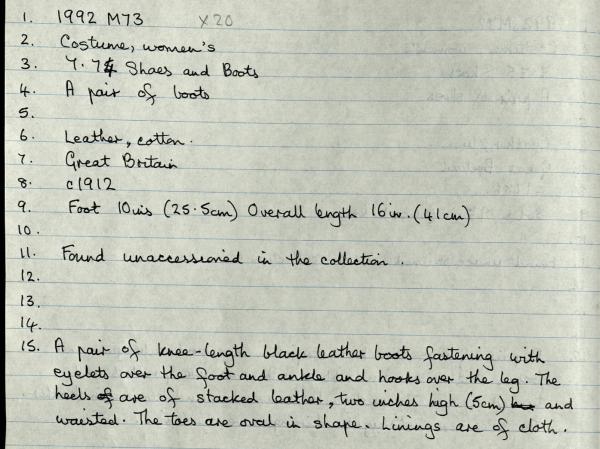 1. 1992 M73 X20
2. Costume, women's
3. Y.74 Shoes and Boots
4. A pair of boots
5.
6. Leather, cotton.
7. Great Britain
8. c1912
9. Foot 10ins (25.5cm) Overall length 16in. (41cm)
10.
11. Found unaccessioned in the collection.
12.
13.
14.
15. A pair of knee-length black leather boots fastening with
eyelets over the foot and ankle and hooks over the leg. The
heels are of stacked leather, two inches high (5cm) and
waisted. The toes are oval in shape. Linings are of cloth.